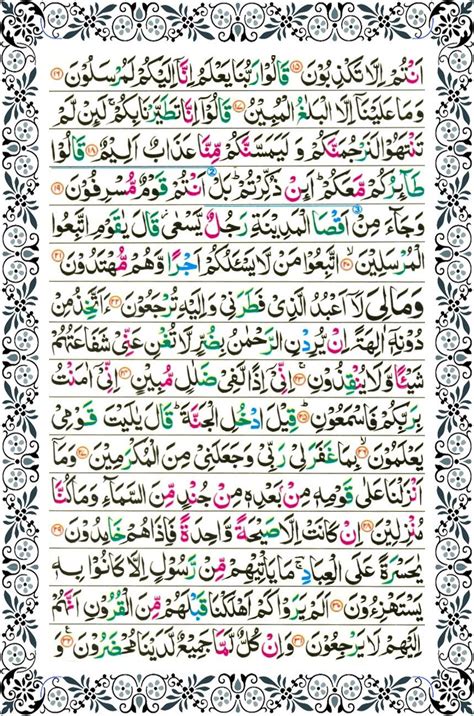 اَنْتُمْ اِلَّا تَكْذِبُوْنَ ۝١٥ قَالُوْا رَبُّنَا يَعْلَمُ اِنَّاۤ اِلَيْكُمْ لَمُرْسَلُوْنَ ۝١٦
وَمَا عَلَيْنَاۤ اِلَّا الْبَلٰغُ الْمُبِيْنُ ۝١٧ قَالُوْۤا اِنَّا تَطَيَّرْنَا بِكُمْ ۚ لَئِنْ لَّمْ
تَنْتَهُوْا لَنَرْجُمَنَّكُمْ وَلَيَمَسَّنَّكُمْ مِّنَّا عَذَابٌ اَلِيْمٌ ۝١٨ قَالُوْا
طَآئِرُكُمْ مَّعَكُمْ ؕ اَئِنْ ذُكِّرْتُمْ ؕ بَلْ اَنْتُمْ قَوْمٌ مُّسْرِفُوْنَ ۝١٩
وَجَآءَ مِنْ اَقْصَا الْمَدِيْنَةِ رَجُلٌ يَّسْعٰى ؗ قَالَ يٰقَوْمِ اتَّبِعُوا
الْمُرْسَلِيْنَ ۝٢٠ اتَّبِعُوْا مَنْ لَّا يَسْئَلُكُمْ اَجْرًا وَّهُمْ مُّهْتَدُوْنَ ۝٢١
وَمَا لِيَ لَاۤ اَعْبُدُ الَّذِيْ فَطَرَنِيْ وَاِلَيْهِ تُرْجَعُوْنَ ۝٢٢ ءَاَتَّخِذُ مِنْ
دُوْنِهٖۤ اٰلِهَةً اِنْ يُّرِدْنِ الرَّحْمٰنُ بِضُرٍّ لَّا تُغْنِ عَنِّيْ شَفَاعَتُهُمْ
شَيْئًا وَّلَا يُنْقِذُوْنِ ۝٢٣ اِنِّيْۤ اِذًا لَّفِيْ ضَلٰلٍ مُّبِيْنٍ ۝٢٤ اِنِّيْۤ اٰمَنْتُ
بِرَبِّكُمْ فَاسْمَعُوْنِ ۝٢٥ قِيْلَ ادْخُلِ الْجَنَّةَ ؕ قَالَ يٰلَيْتَ قَوْمِيْ
يَعْلَمُوْنَ ۝٢٦ بِمَا غَفَرَ لِيْ رَبِّيْ وَجَعَلَنِيْ مِنَ الْمُكْرَمِيْنَ ۝٢٧ وَمَاۤ
اَنْزَلْنَا عَلٰى قَوْمِهٖ مِنْ بَعْدِهٖ مِنْ جُنْدٍ مِّنَ السَّمَآءِ وَمَا كُنَّا
مُنْزِلِيْنَ ۝٢٨ اِنْ كَانَتْ اِلَّا صَيْحَةً وَّاحِدَةً فَاِذَا هُمْ خٰمِدُوْنَ ۝٢٩
يٰحَسْرَةً عَلَى الْعِبَادِ ۚ مَا يَاْتِيْهِمْ مِّنْ رَّسُوْلٍ اِلَّا كَانُوْا بِهٖ
يَسْتَهْزِءُوْنَ ۝٣٠ اَلَمْ يَرَوْا كَمْ اَهْلَكْنَا قَبْلَهُمْ مِّنَ الْقُرُوْنِ اَنَّهُمْ
اِلَيْهِمْ لَا يَرْجِعُوْنَ ۝٣١ وَاِنْ كُلٌّ لَّمَّا جَمِيْعٌ لَّدَيْنَا مُحْضَرُوْنَ ۝٣٢ وَ